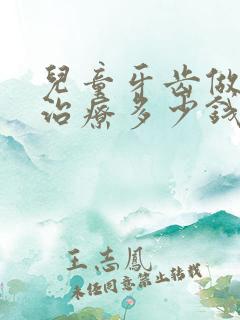 兒童牙齒做
治療多少錢
王志鳳
未经同意禁止转载